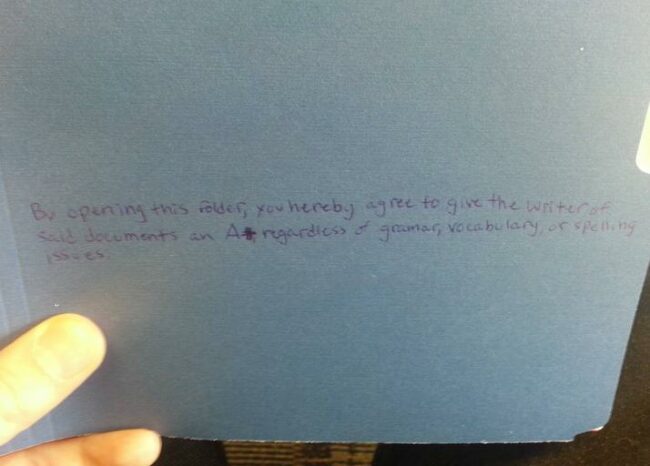 By opening this folder, you hereby agree to give the writer of
said documents an A+, regardless of gramar, vocabulary, or spelling
issues.